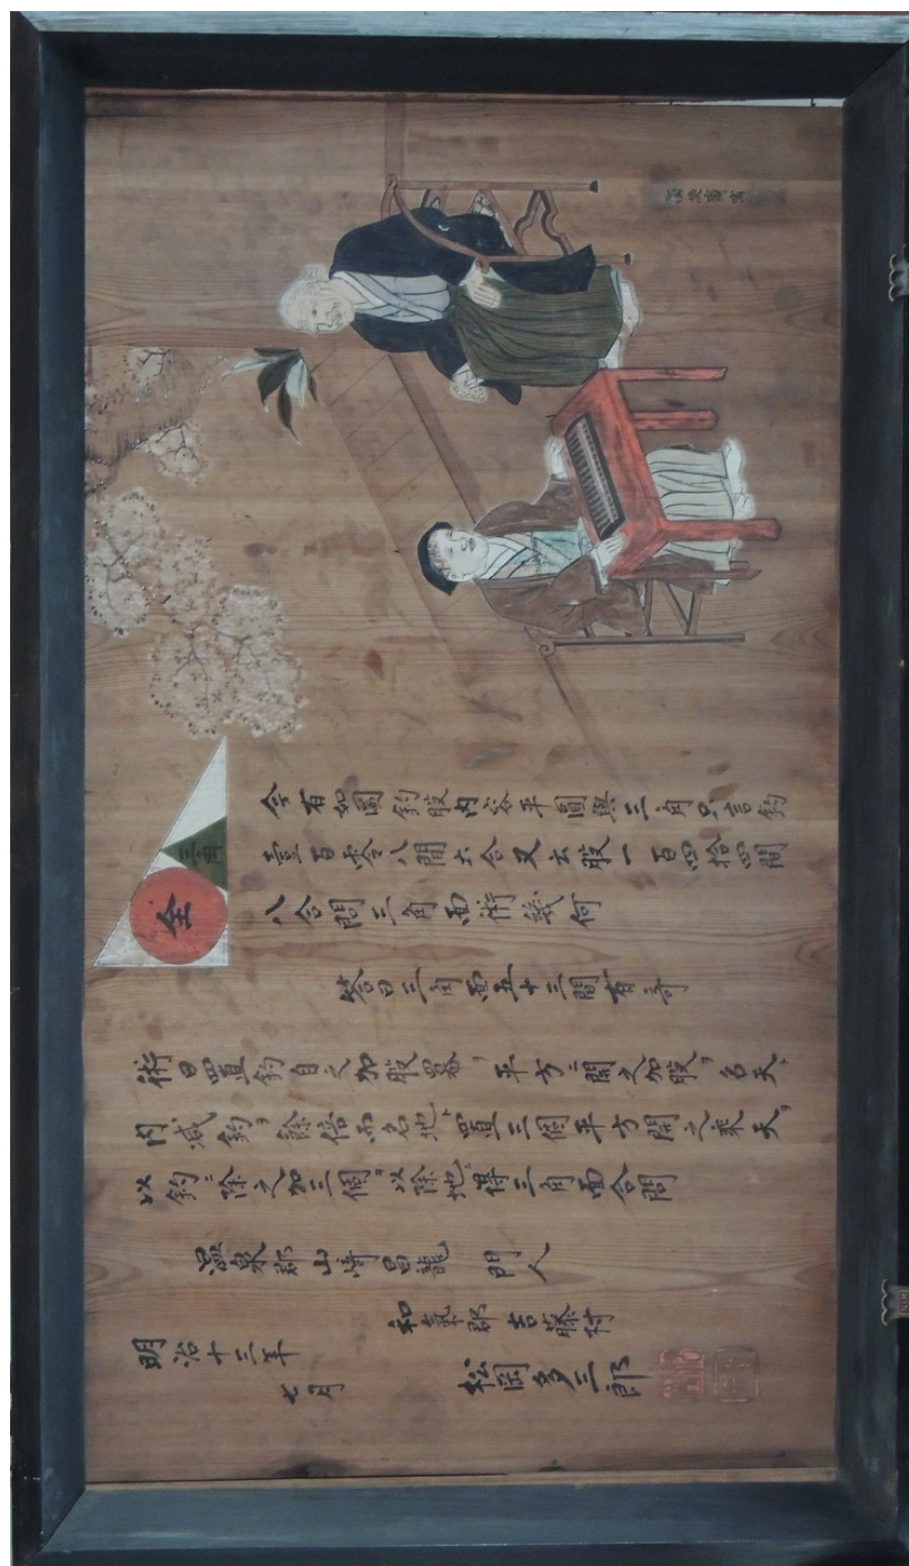 三角
全
今有如圖釣股内容平圓與三角只言釣
壹百零八間六合又云股一百四拾四間
八合問三角面術幾何
答曰三角面五十三間有奇
術曰置釣自之加股羃平方開之加股名天
内減釣餘倍而名地置三個平方開之乗天
以釣除之加三個以除地得三角面合問
温泉郡山崎昌龍 門人
和氣郡吉藤村
松岡多三郎
明治十三年
七月